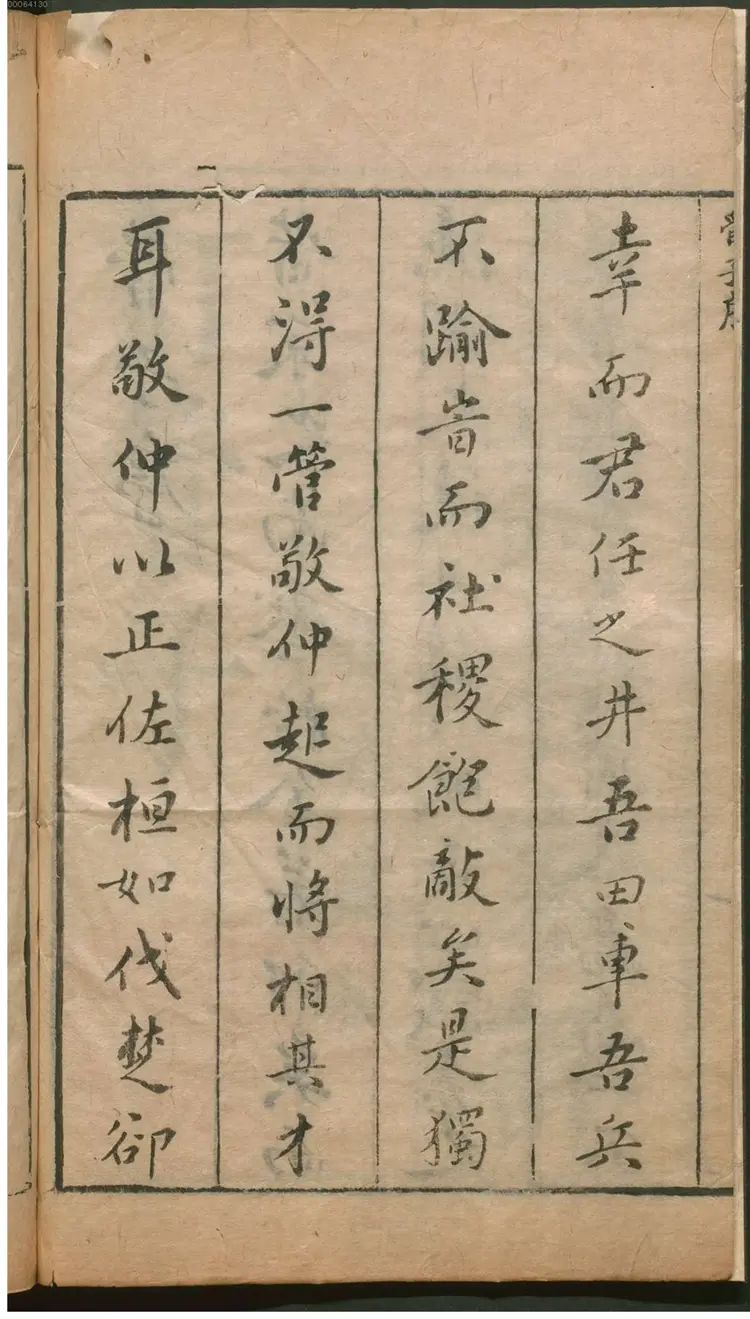 00064130
管子序
幸而君任之井吾田車吾兵
不踰昔而社稷飽敵矣是獨
不得一管敬仲起而將相其才
耳敬仲以正佐桓如伐楚卻